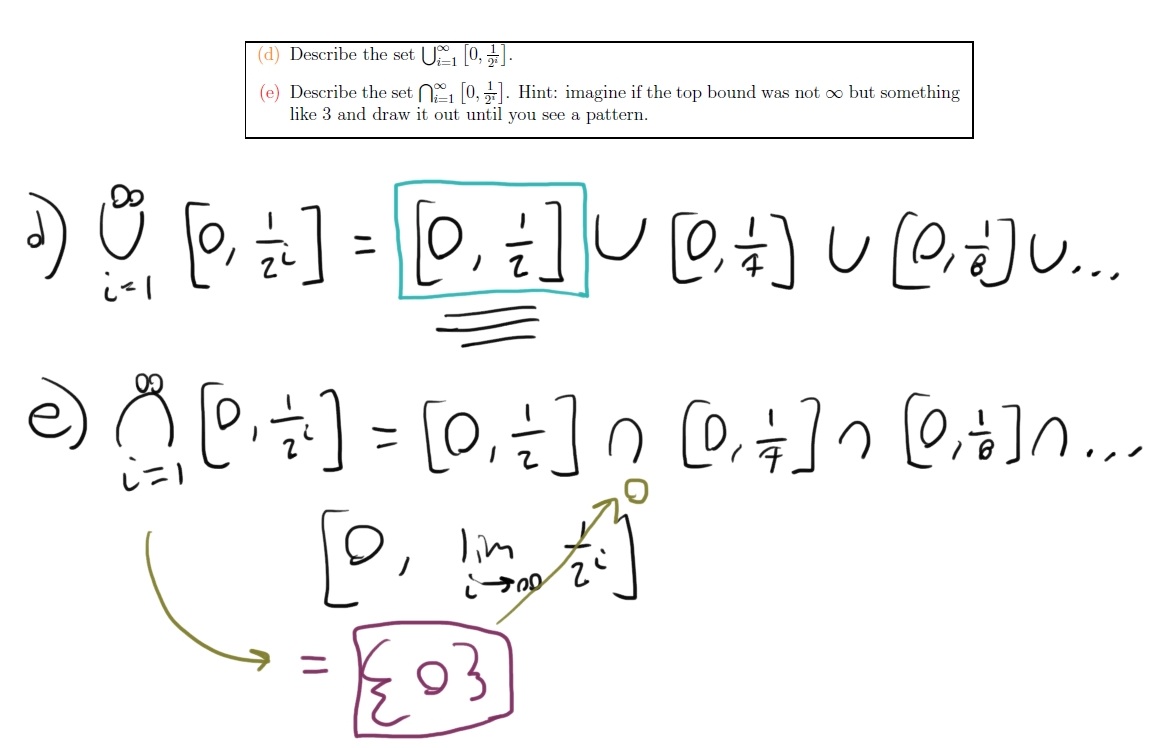 (d) Describe the set ⋃_{i=1}^{∞} [0, 1/2^i].
(e) Describe the set ⋂_{i=1}^{∞} [0, 1/2^i]. Hint: imagine if the top bound was not ∞ but something
like 3 and draw it out until you see a pattern.
d) ⋃_{i=1}^{∞} [0, 1/2^i] = [0, 1/2] ∪ [0, 1/4] ∪ [0, 1/8] ∪ ...
e) ⋂_{i=1}^{∞} [0, 1/2^i] = [0, 1/2] ∩ [0, 1/4] ∩ [0, 1/8] ∩ ...
0
[0, lim_{i→∞} 1/2^i]
= {0}